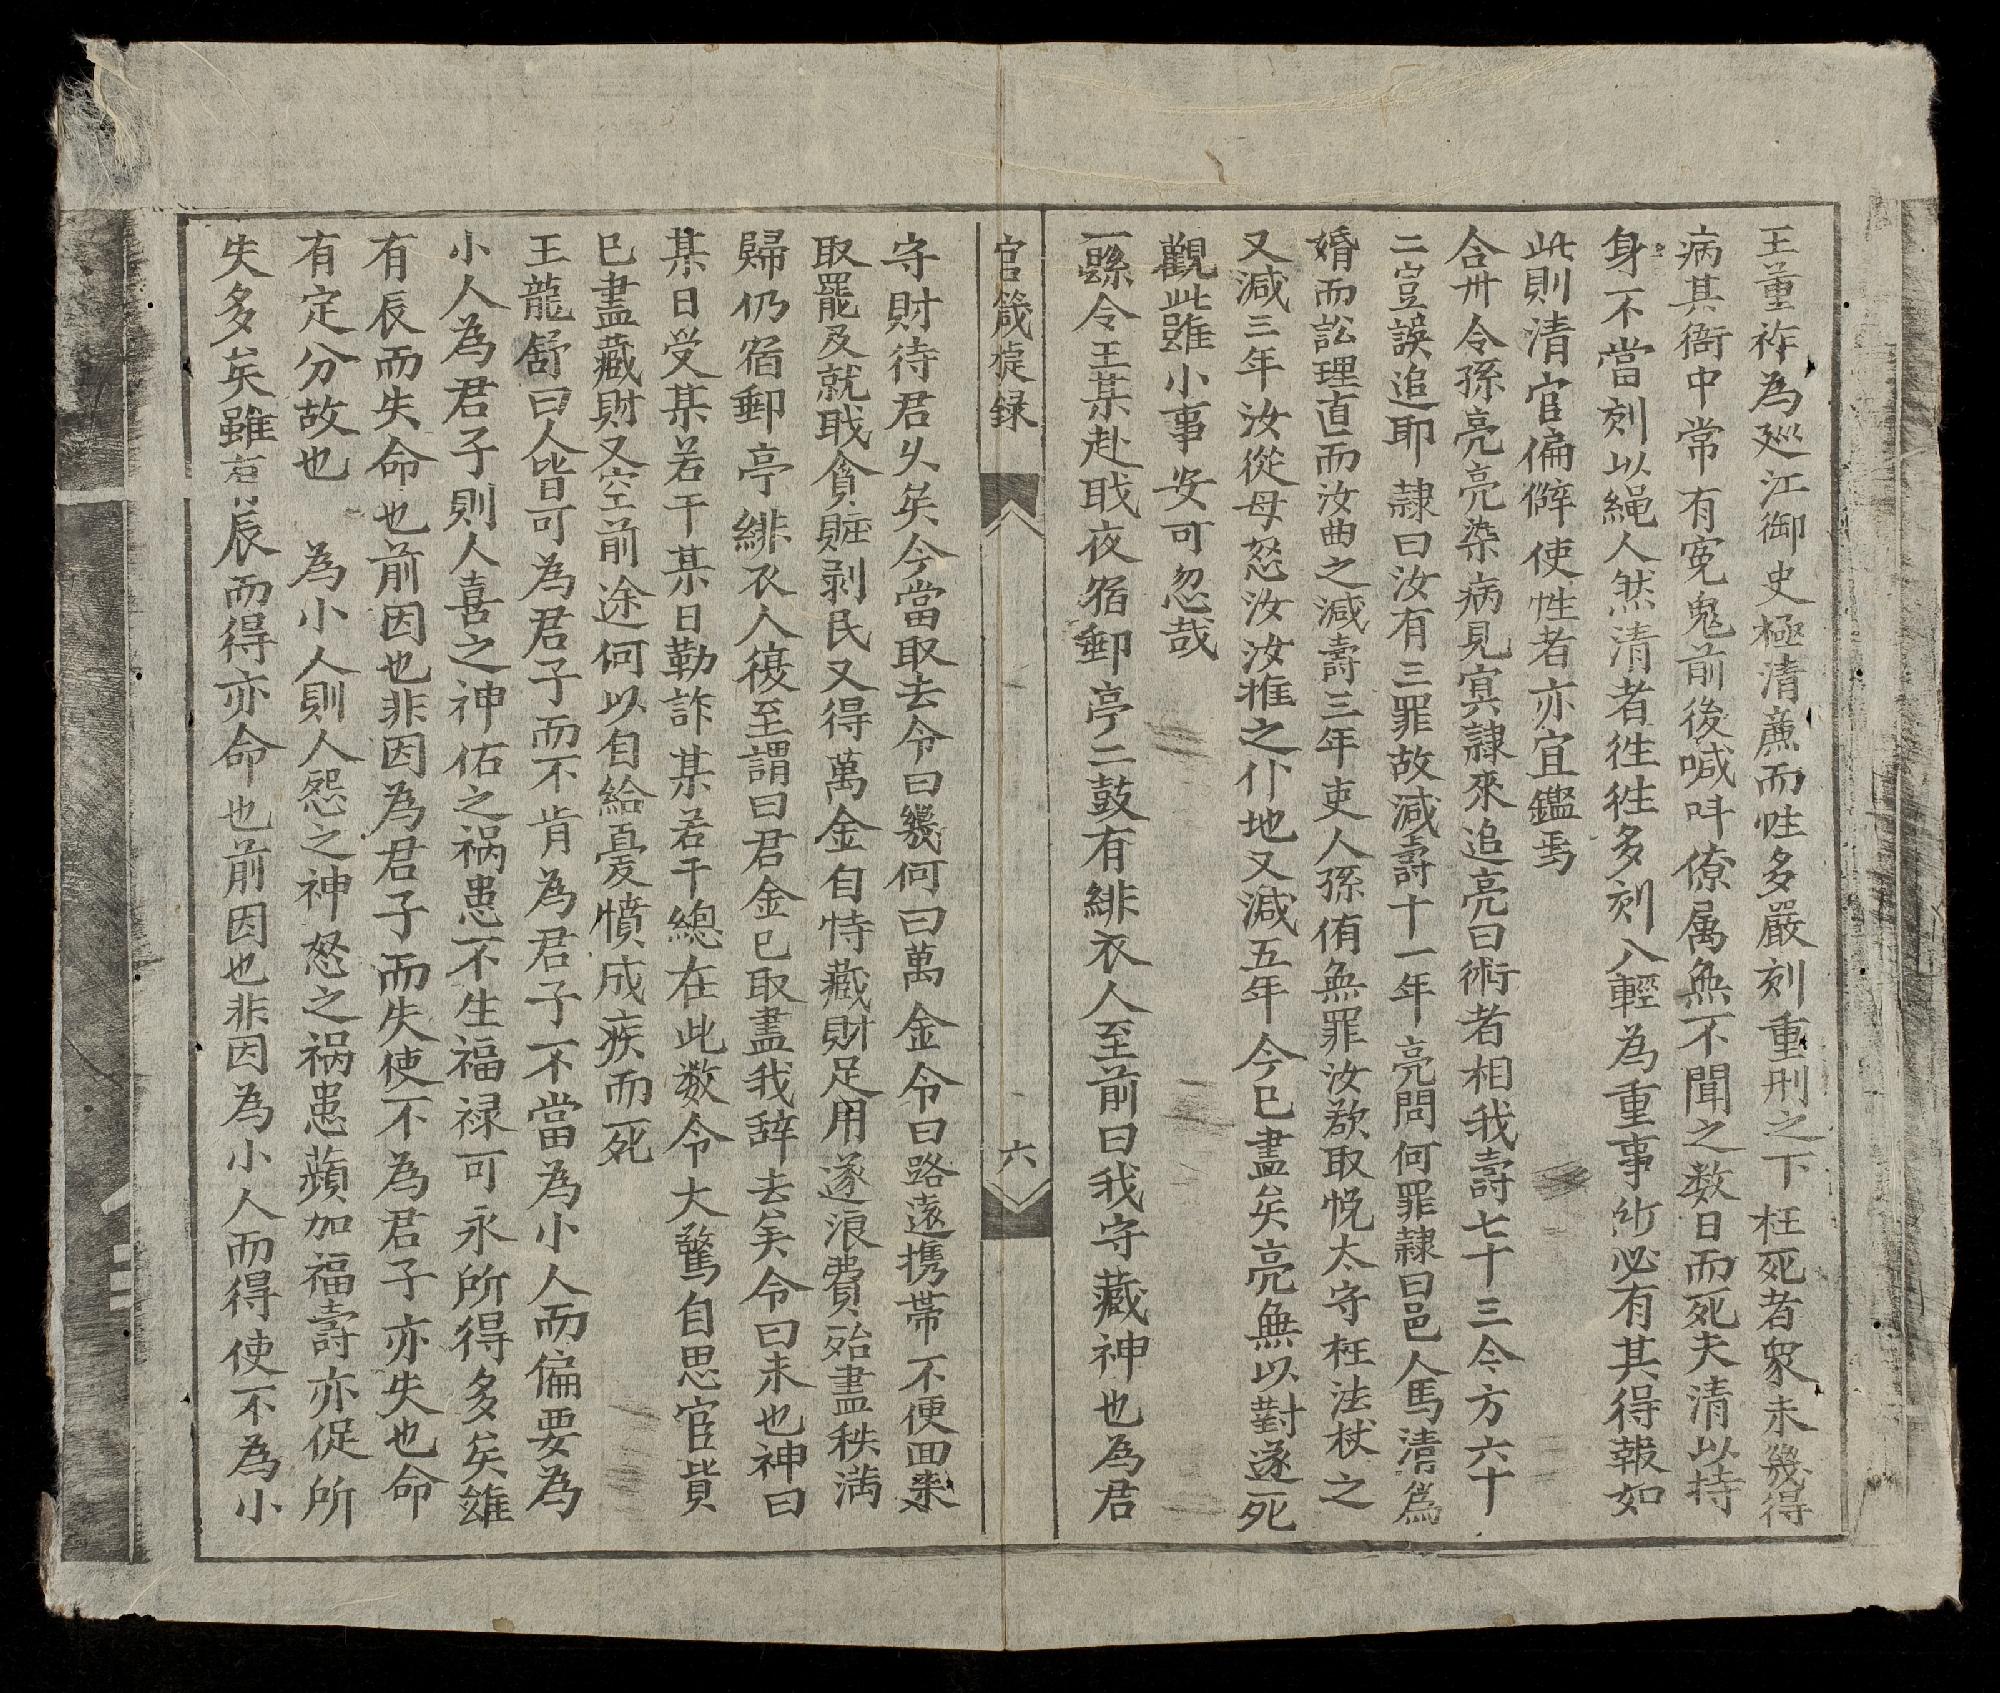 王董祚為廵江御史極清廉而性多嚴刻重刑之下枉死者衆未幾得
病其衙中常有寃鬼前後喊呌僚属無不聞之数日而死夫清以持
身不當刻以繩人然清者徃徃多刻入輕為重事𫃵必有其得報如
此則清官偏僻使性者亦宜鑑焉
合卅令孫亮亮染病見㝠隷來追亮曰術者相我壽七十三今方六十
二豈誤追耶隷曰汝有三罪故減壽十一年亮問何罪隷曰邑人馬清為
婚而訟理直而汝曲之減壽三年吏人孫侑無罪汝欲取悅太守枉法杖之
又減三年汝從母怒汝汝推之仆地又減五年今已盡矣亮無以對遂死
觀此雖小事安可忽哉
一縣令王某赴戝夜宿郵亭二鼓有緋衣人至前曰我守藏神也為君
官箴㨗録
六
守財待君乆矣今當取去令曰幾何曰萬金令曰路遠携帯不便回来
取罷及就戝貪賍剥民又得萬金自恃藏財足用遂浪費殆盡秩満
歸仍宿郵亭緋衣人復至謂曰君金已取盡我辞去矣令曰未也神曰
某日受某若干某日勒詐某若干總在此数令大驚自思宦貲
已盡藏財又空前途何以自給憂憤成疾而死
王龍舒曰人皆可為君子而不肯為君子不當為小人而偏要為
小人為君子則人喜之神佑之禍患不生福禄可永所得多矣雖
有辰而失命也前因也非因為君子而失使不為君子亦失也命
有定分故也　為小人則人怨之神怒之禍患蘋加福壽亦促所
失多矣雖有辰而得亦命也前因也非因為小人而得使不為小